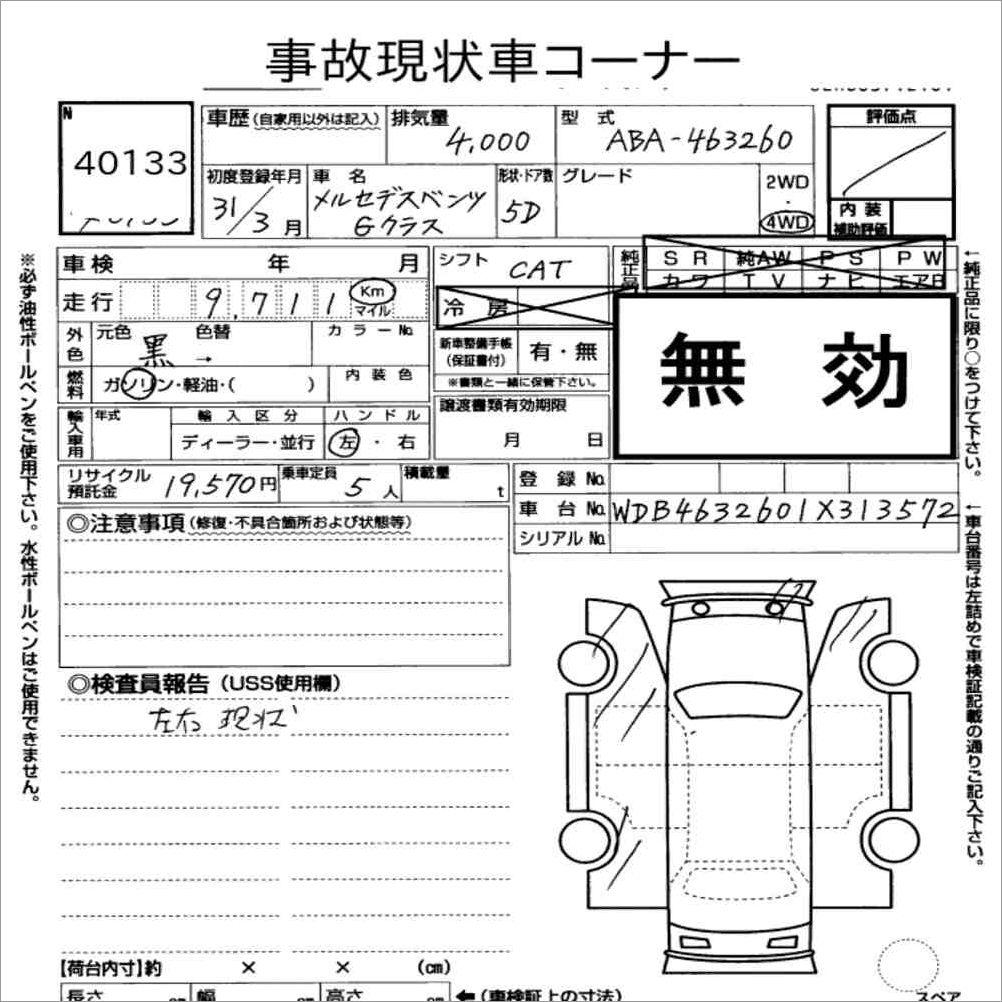 事故現状車コーナー
N
40133
車歴 (自家用以外は記入)
排気量
4,000
型式
ABA-463260
評価点
初度登録年月
31/3月
車名
メルセデスベンツ
Gクラス
形状・ドア数
5D
グレード
2WD
・
4WD
内装
補助評価
車検 年 月
シフト CAT
純正品
SR 純AW PS PW
カワ TV ナビ エアB
走行 9,711 Km
マイル
冷房
無効
外色
元色 黒 → 色替
カラーNo.
新車整備手帳
(保証書付)
有・無
※書類と一緒に保管下さい。
燃料
ガソリン・軽油・( )
内装色
輸入車用
年式
輸入区分
ディーラー・並行
ハンドル
左・右
譲渡書類有効期限
月 日
リサイクル
預託金
19,570円
乗車定員
5人
積載量
t
登録No.
車台No. WDB4632601X313572
シリアルNo.
◎注意事項(修復・不具合箇所および状態等)
◎検査員報告(USS使用欄)
左右 現状
※必ず油性ボールペンをご使用下さい。水性ボールペンはご使用できません。
←純正品に限り○をつけて下さい。
←車台番号は左詰めで車検証記載の通りご記入下さい。
【荷台内寸】約 × × (cm)
長さ cm 幅 cm 高さ cm
←(車検証上の寸法)
スペア